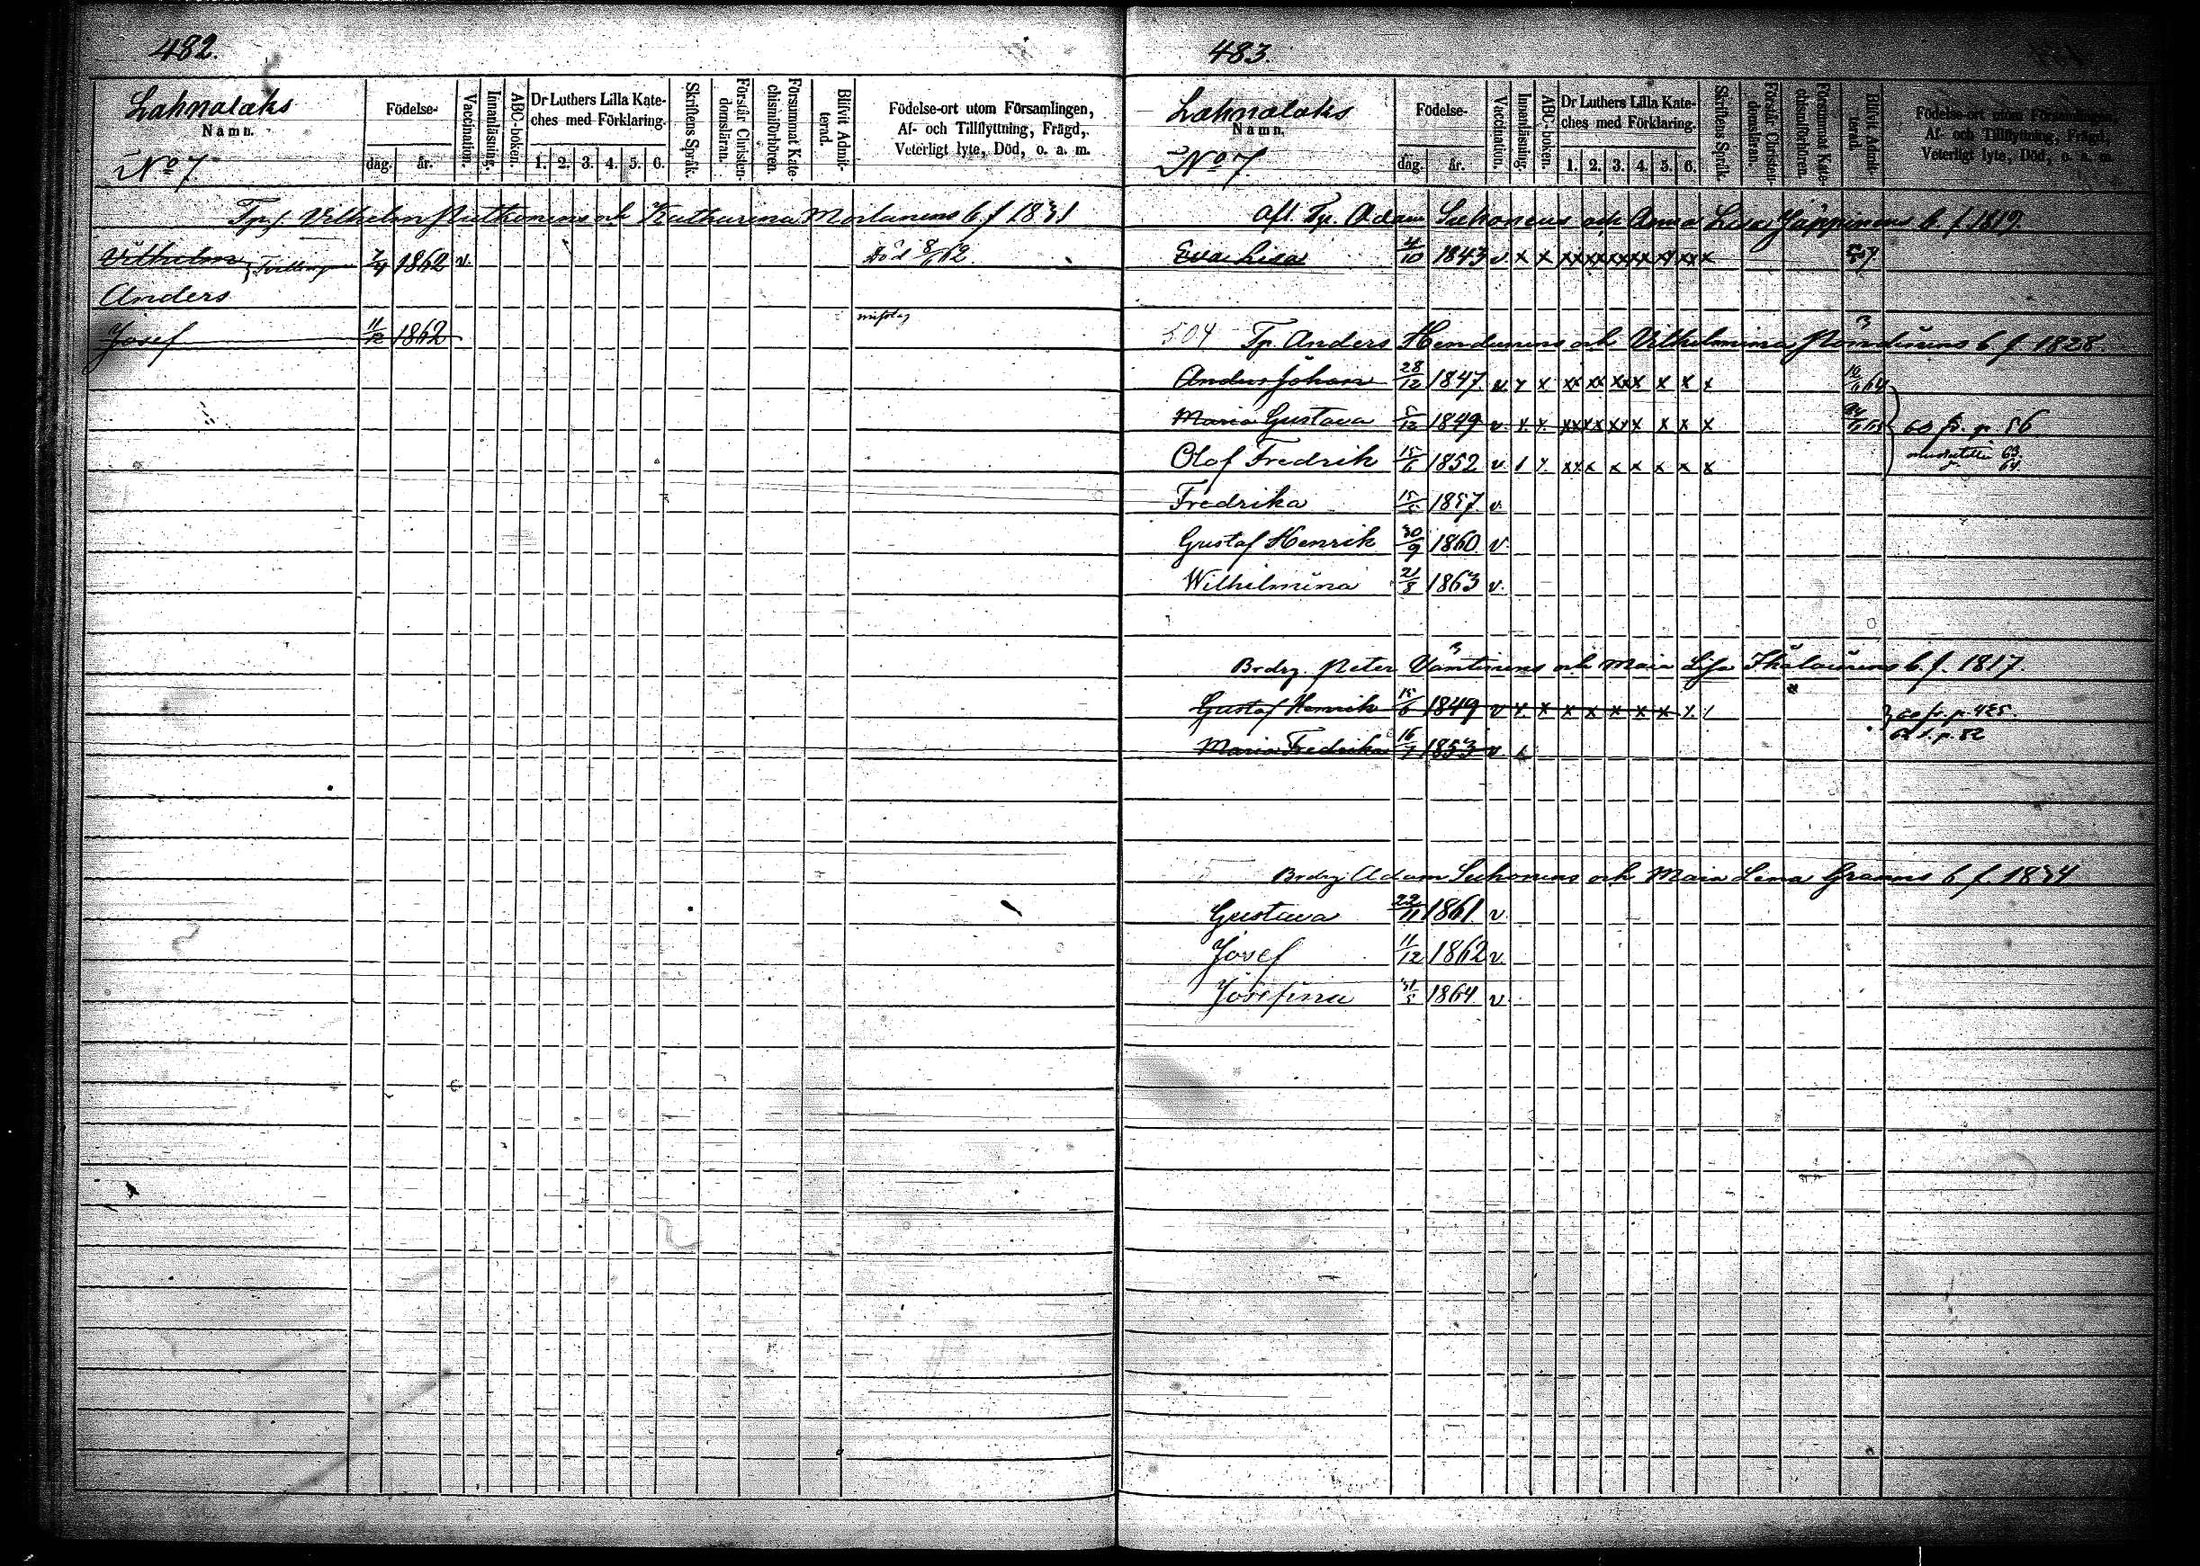 482.
Lahnalaks
Namn.
No 7
Födelse-
dag. år.
Vaccination.
Innanläsning.
ABC-boken.
Dr Luthers Lilla Kate-
ches med Förklaring.
1. 2. 3. 4. 5. 6.
Skriftens Språk.
Förstår Christen-
domsläran.
Försummat Kate-
chismiförhören.
Blifvit Admit-
terad.
Födelse-ort utom Församlingen,
Af- och Tillflyttning, Frägd,
Veterligt lyte, Död, o. a. m.
Vilhelm och Katharina b. f 1831
Vilhelm Tvillingar 7/4 1862 v. Död 8/6 62.
Anders
Josef 11/12 1862
483.
Lahnalaks
Namn.
No 7.
Födelse-
dag. år.
Vaccination.
Innanläsning.
ABC-boken.
Dr Luthers Lilla Kate-
ches med Förklaring.
1. 2. 3. 4. 5. 6.
Skriftens Språk.
Förstår Christen-
domsläran.
Försummat Kate-
chismiförhören.
Blifvit Admit-
terad.
Födelse-ort utom Församlingen,
Af- och Tillflyttning, Frägd,
Veterligt lyte, Död, o. a. m.
afl. Tp. Adam Suhonens och Anna Lisa Jäppinens b. f. 1819.
Eva Lisa 4/10 1843 v x x xx xx xx xx x xx x
504 Tp. Anders och Vilhelmina b. f. 1828.
Anders Johan 28/12 1847. v. x x xx xx xx x x x x
Maria Gustava 5/12 1849 v. x x xx xx x x x x x 60 fr. p. 56.
Olof Fredrik 15/6 1852 v x x x x x x x x 63. 64.
Fredrika 15/5 1857. v.
Gustaf Henrik 30/9 1860 v.
Wilhelmina 21/8 1863 v.
Brdrz. Peter och Maria Lisa b. f. 1817.
Gustaf Henrik 15/6 1849 v x. x x x x x x 60 fr. p. 425.
Maria Fredrika 16/7 1853 v p. 82
Brdrz Adam Suhonens och Maria Lena b. f. 1834
Gustava 22/11 1861. v.
Josef 11/12 1862 v.
Josefina 31/5 1864. v.